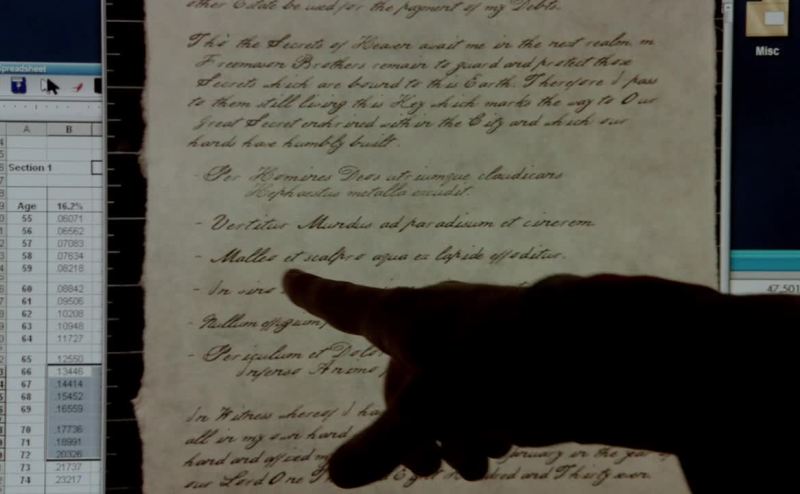 other Estate be used for the payment of my Debts.
Tho' the Secrets of Heaven await me in the next realm, m
Freemason Brothers remain to guard and protect those
Secrets which are bound to this Earth. Therefore I pass
to them still living this Key which marks the way to Our
Great Secret enshrined within the City and which our
hands have humbly built.
- Per Homines Deos utriumque claudicans
Hephaestus metalla excudit.
- Vertitur Mundus ad paradisum et cinerem.
- Malleo et scalpro aqua ex lapide effoditur.
- In
- Nullum
- Periculum et Dolo
Infenso Animo
In Witness whereof I ha
all in my own hand
hand and affixed my
January in the year of
our Lord One Th
Eight Hundred and Thirty seven
Misc
47,501
Spreadsheet
A B
Section 1
Age 16.2%
55 .06071
56 .06562
57 .07083
58 .07634
59 .08218
60 .08842
61 .09506
62 .10208
63 .10948
64 .11727
65 .12550
66 .13446
67 .14414
68 .15452
69 .16559
70 .17736
71 .18991
72 .20326
73 .21737
74 .23217